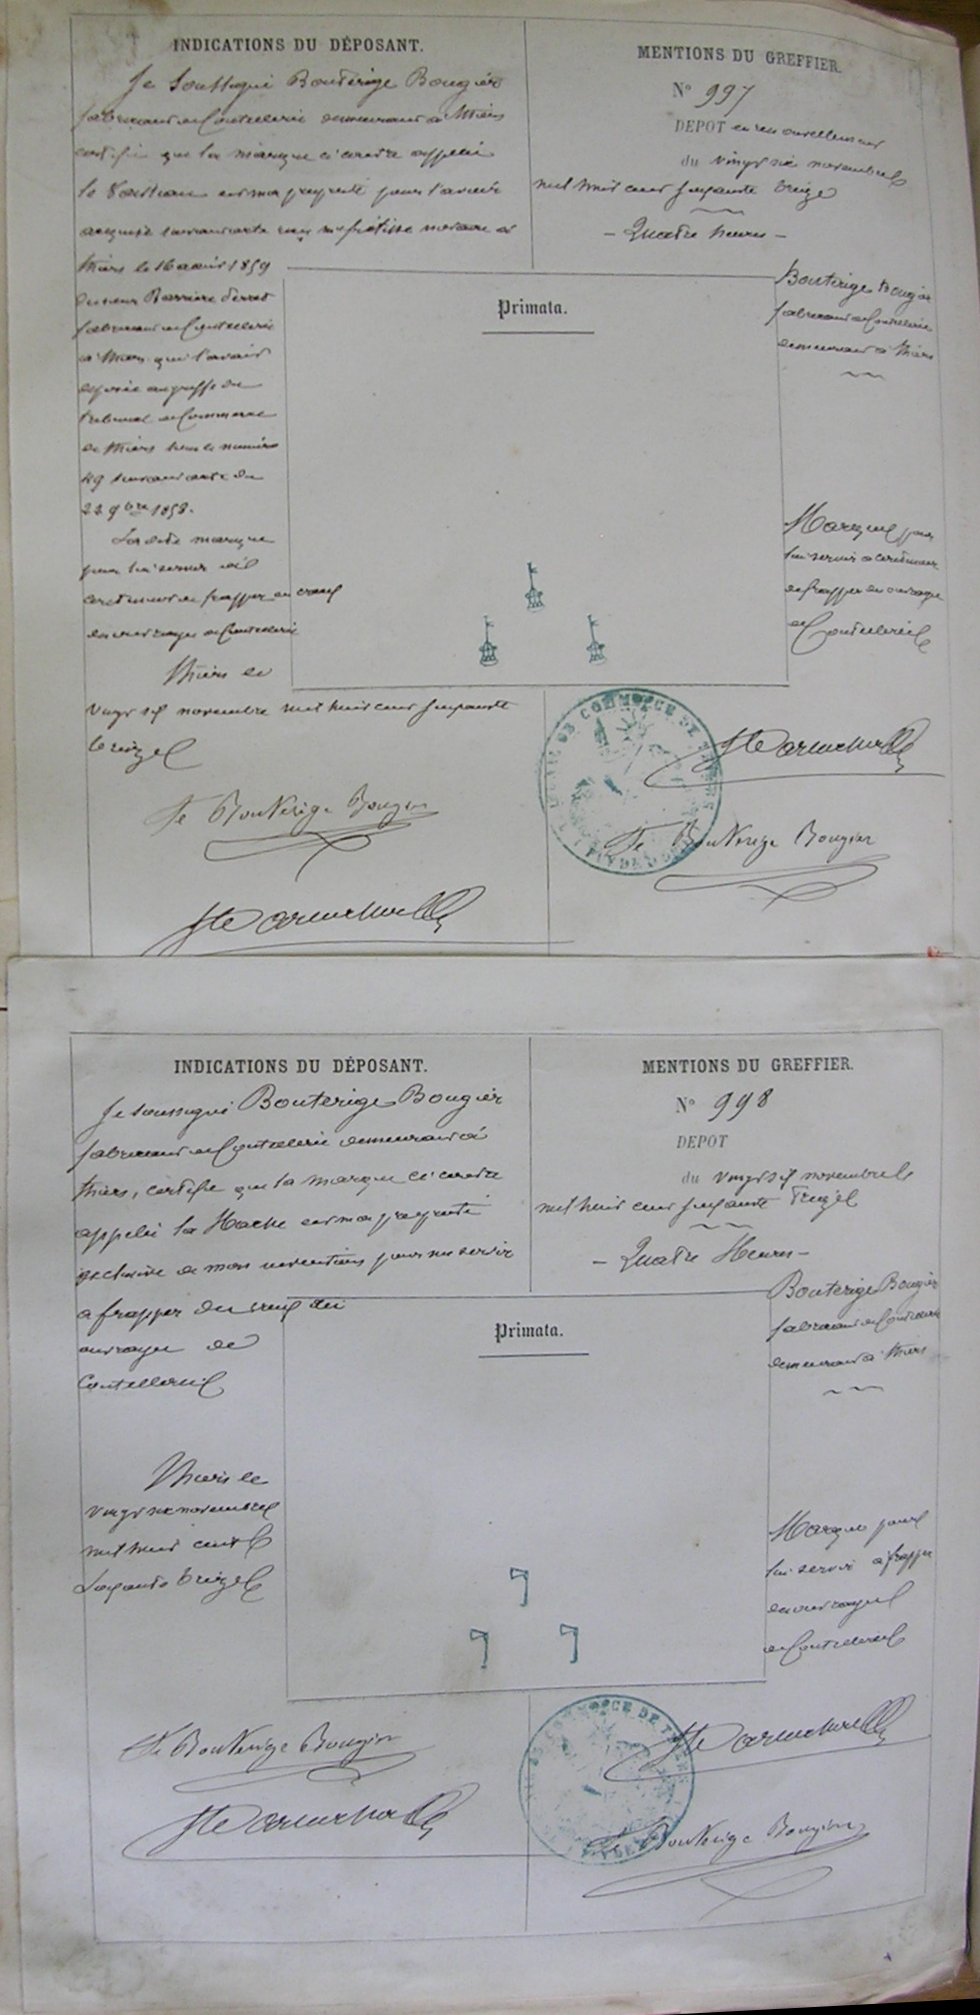 INDICATIONS DU DÉPOSANT.
Je soussigné Bouterige Bougier
fabricant de Coutellerie demeurant à Thiers
certifie que la marque ci contre appelée
le est ma propriété pour l'avoir
acquise suivant acte reçu notaire à
Thiers le 16 août 1859
du sieur Barrière
fabricant de Coutellerie
à Thiers qui l'avait
déposée au greffe du
tribunal de Commerce
de Thiers sous le numéro
49 suivant acte du
22 9bre 1858.
La dite marque
pour lui servir
de frapper en creux
des ouvrages de Coutellerie
Thiers le
vingt six novembre mil huit cent soixante
treize
Te Bouterige Bougier
MENTIONS DU GREFFIER.
N° 997
DEPOT en renouvellement
du vingt six novembre
mil huit cent soixante treize
- Quatre heures -
Bouterige Bougier
fabricant de Coutellerie
demeurant à Thiers
Primata.
Marque pour
lui servir
de frapper des ouvrages
de Coutellerie
COMMERCE DE THIERS
Te Bouterige Bougier
INDICATIONS DU DÉPOSANT.
Je soussigné Bouterige Bougier
fabricant de Coutellerie demeurant à
Thiers, certifie que la marque ci contre
appelée la Hache est ma propriété
exclusive de mon invention pour me servir
à frapper en creux des
ouvrages de
Coutellerie
Thiers le
vingt six novembre
mil huit cent
soixante treize
Te Bouterige Bougier
MENTIONS DU GREFFIER.
N° 998
DEPOT
du vingt six novembre
mil huit cent soixante treize
- Quatre Heures -
Bouterige Bougier
fabricant de Coutellerie
demeurant à Thiers
Primata.
Marque pour
lui servir à frapper
des ouvrages
de Coutellerie
COMMERCE DE THIERS
Te Bouterige Bougier